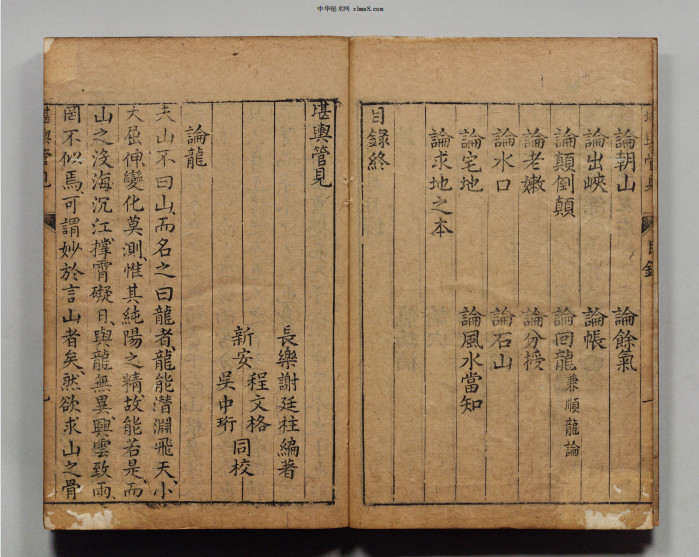 中华秘术网 zhms8.com
論朝山 論餘氣
論出峽 論帳
論顛倒顛 論回龍兼順龍論
論老嫩 論分授
論水口 論石山
論宅地 論風水當知
論求地之本
目錄終
堪輿管見
長樂謝廷柱編著
新安 程文格
吳中珩 同校
論龍
夫山不曰山而名之曰龍者龍能潛淵飛天小
大屈伸變化莫測惟其純陽之精故能若是而
山之沒海沉江撑霄礙日與龍無異興雲致雨
罔不似焉可謂妙於言山者矣然欲求山之骨
堪輿管見